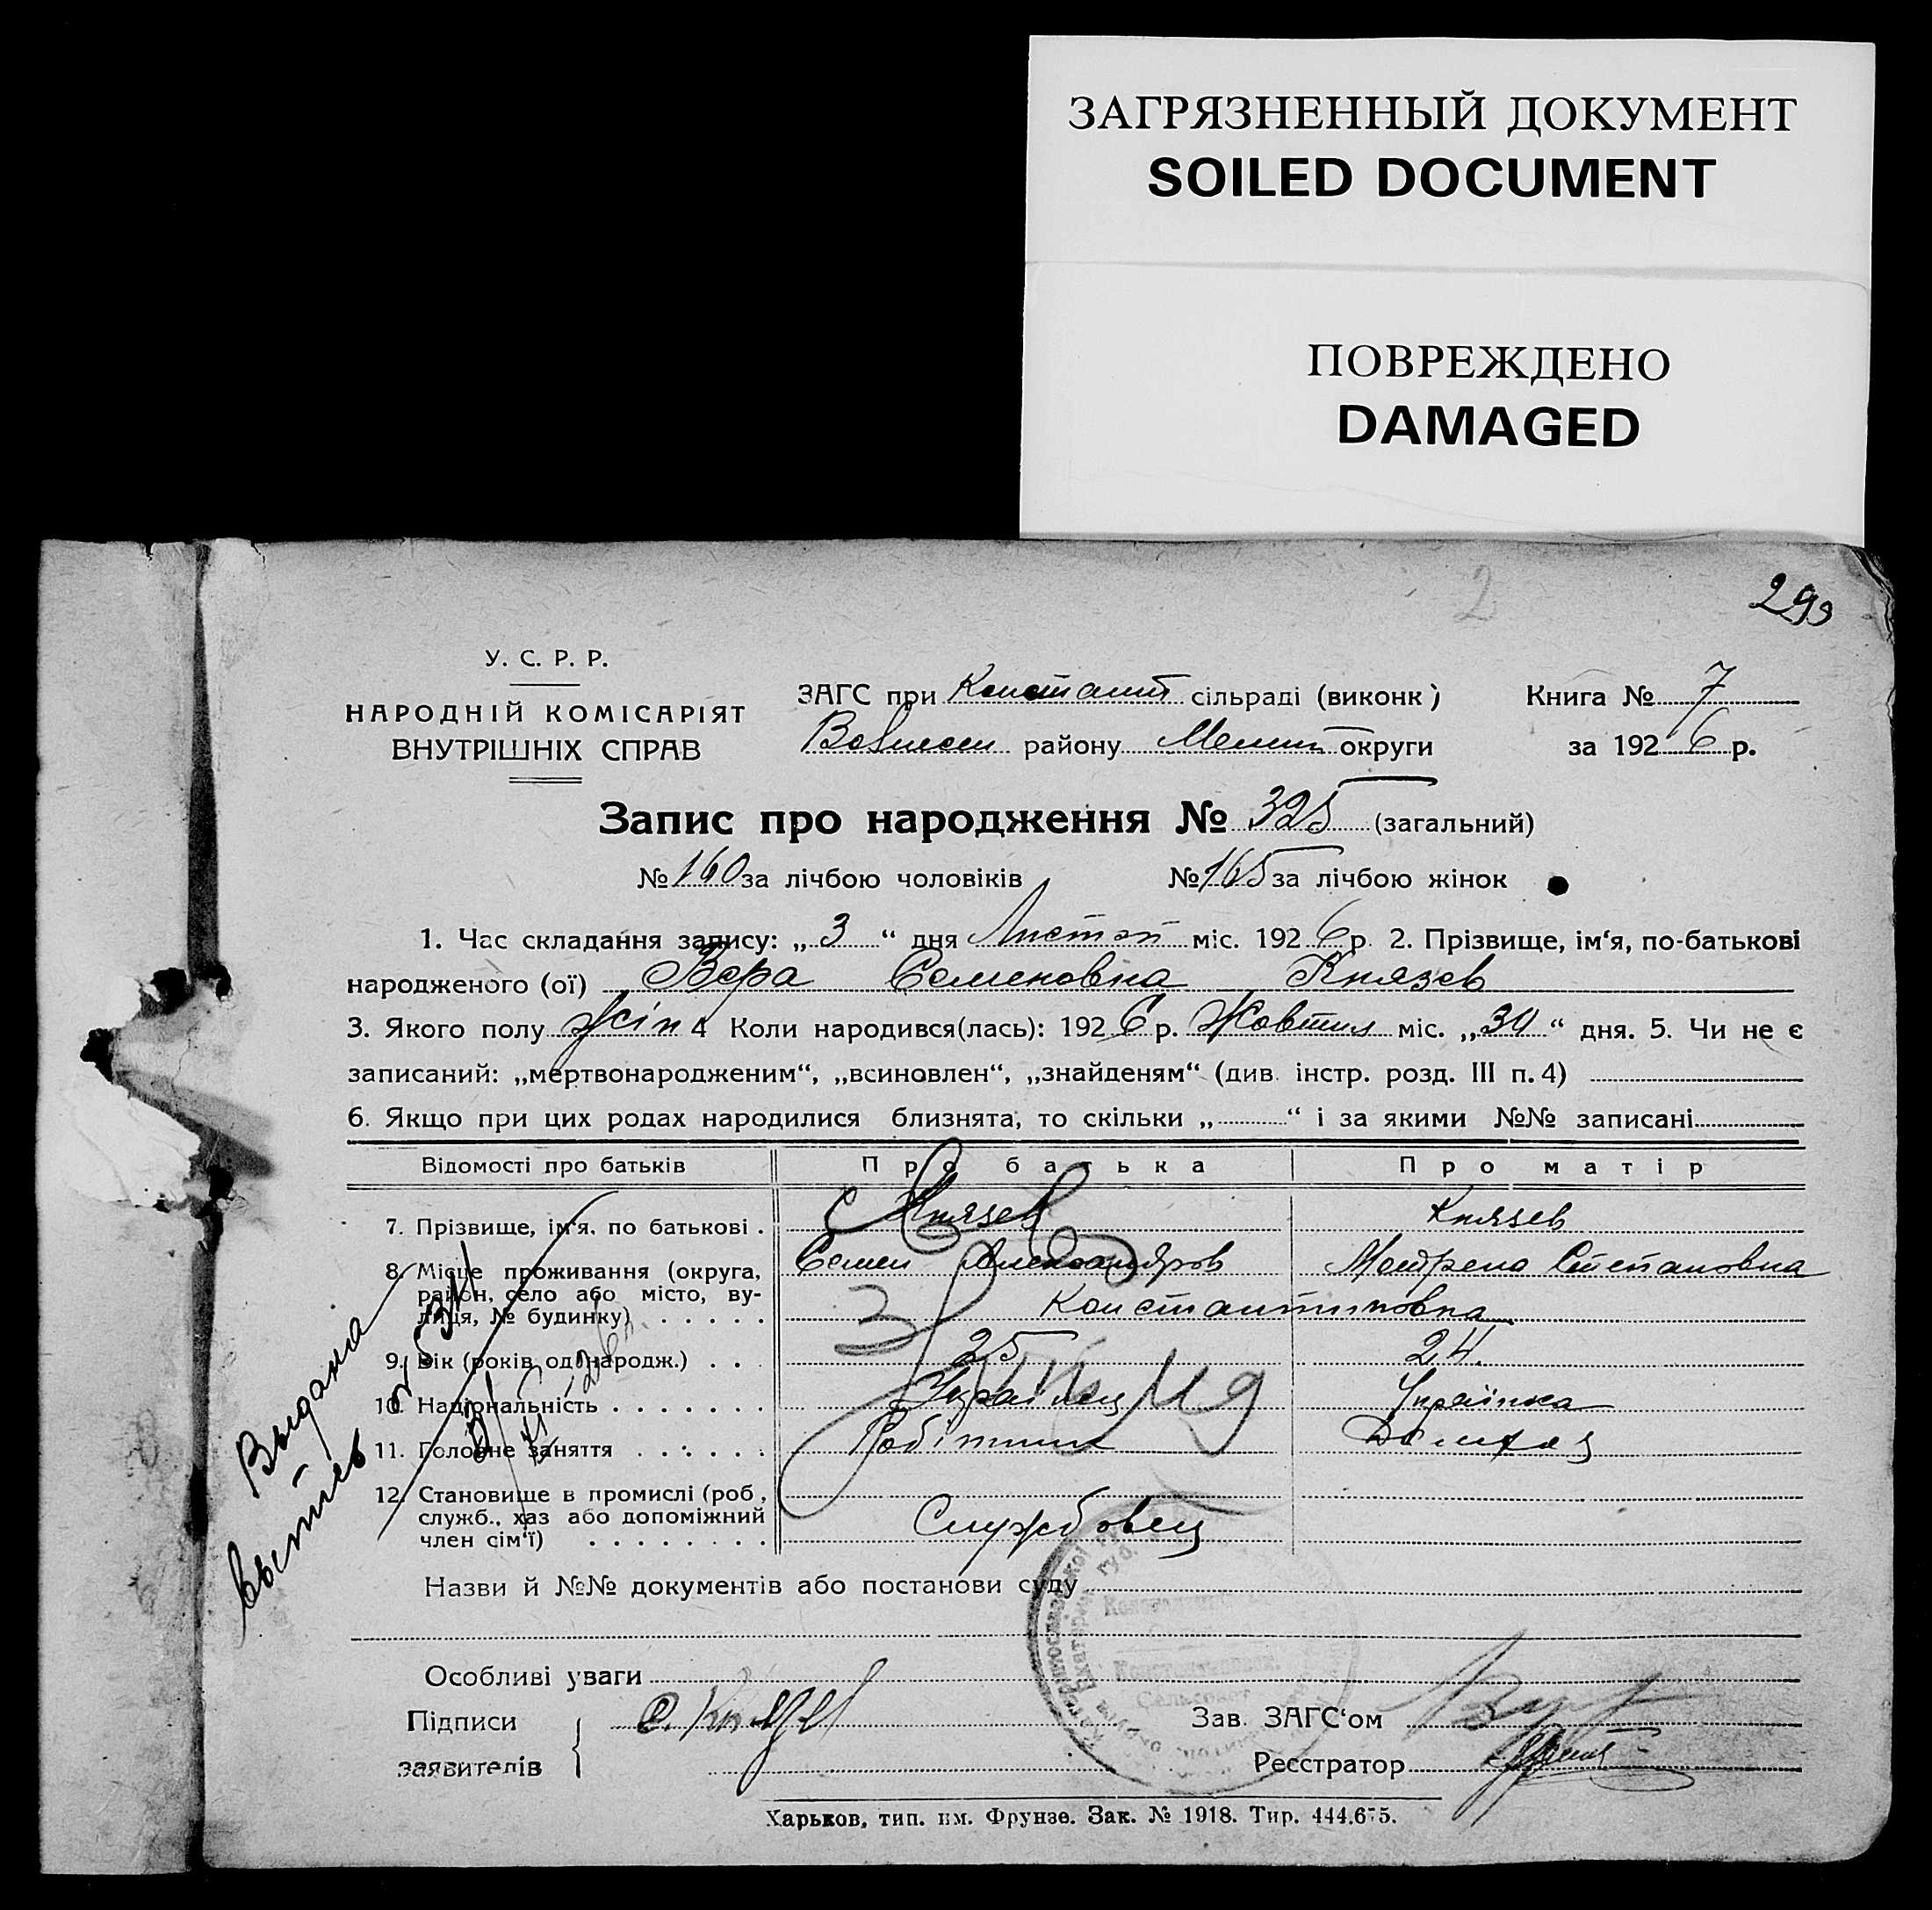 ЗАГРЯЗНЕННЫЙ ДОКУМЕНТ
SOILED DOCUMENT
ПОВРЕЖДЕНО
DAMAGED
2
293
У. С. Р. Р.
НАРОДНІЙ КОМІСАРІЯТ
ВНУТРІШНІХ СПРАВ
ЗАГС при Констант сільраді (виконк)
Вознесен району Мелит округи
Книга № 7
за 1926 р.
Запис про народження № 325 (загальний)
№ 160 за лічбою чоловіків № 165 за лічбою жінок
1. Час складання запису: „ 3 “ дня Листоп міс. 1926 р. 2. Прізвище, ім‘я, по-батькові
народженого (ої) Вера Семеновна Князев
3. Якого полу жін 4 Коли народився(лась): 1926 р. Жовтня міс. „ 30 “ дня. 5. Чи не є
записаний: „мертвонародженим“, „всиновлен“, „знайденям“ (див. інстр. розд. III п. 4)
6. Якщо при цих родах народилися близнята, то скільки „ “ і за якими №№ записані
Відомості про батьків Про батька Про матір
7. Прізвище, ім‘я, по батькові . Князев Князев
Семен Александров Мотрена Степановна
8. Місце проживання (округа,
район, село або місто, ву-
лиця, № будинку) . . . . . Константиновна
9. Вік (років од народж.) . . . 25 24.
10. Національність . . . . . . . Українец Українка
11. Головне заняття . . . . . . Робітник Домхоз
12. Становище в промислі (роб.,
служб., хаз або допоміжний
член сім‘ї) . . . . . . . . Службовец
Выдана
выпись
Назви й №№ документів або постанови суду
Особливі уваги
Підписи
заявителів
С. Князев
Зав. ЗАГС‘ом
Реєстратор
Сельсовет
Харьков, тип. им. Фрунзе. Зак. № 1918. Тир. 444.675.